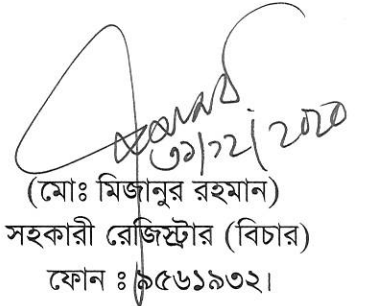 ৩১/১২/২০২০
(মোঃ মিজানুর রহমান)
সহকারী রেজিস্ট্রার (বিচার)
ফোন ঃ ৯৫৬১৯৩২।